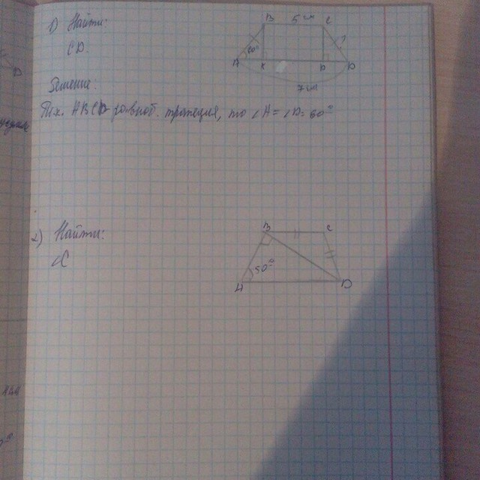 1) Найти:
CD.
B 5 см C
60°
?
A K P D
7 см
Решение:
Т.к. ABCD равноб. трапеция, то ∠A = ∠D = 60°
2) Найти:
∠C
B C
50°
A D